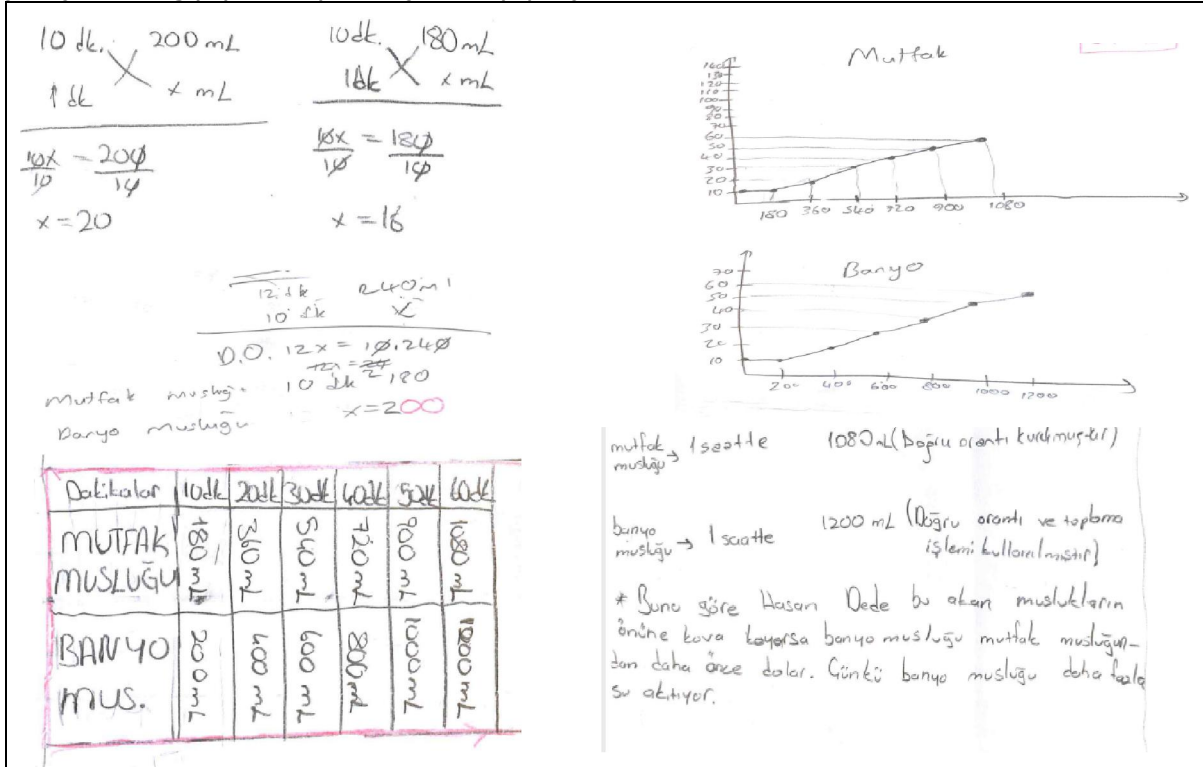 10 dk. 200 mL
1 dk x mL
10x/10 = 200/10
x = 20
10dk. 180 mL
1dk x mL
10x/10 = 180/10
x = 18
12 dk 240 ml
10 dk x
D.O. 12x = 10.240
10 dk 180
x = 200
Mutfak musluğu
Banyo musluğu
Dakikalar 10dk 20dk 30dk 40dk 50dk 60dk
MUTFAK MUSLUĞU 180 mL 360 mL 540 mL 720 mL 900 mL 1080 mL
BANYO MUS. 200 mL 400 mL 600 mL 800 mL 1000 mL 1200 mL
Mutfak
140
130
120
110
100
90
80
70
60
50
40
30
20
10
180 360 540 720 900 1080
Banyo
70
60
50
40
30
20
10
200 400 600 800 1000 1200
mutfak musluğu → 1 saatte 1080 mL (Doğru orantı kurulmuştur)
banyo musluğu → 1 saatte 1200 mL (Doğru orantı ve toplama
işlemi kullanılmıştır)
* Buna göre Hasan Dede bu akan muslukların
önüne kova koyarsa banyo musluğu mutfak musluğun-
dan daha önce dolar. Çünkü banyo musluğu daha fazla
su akıtıyor.